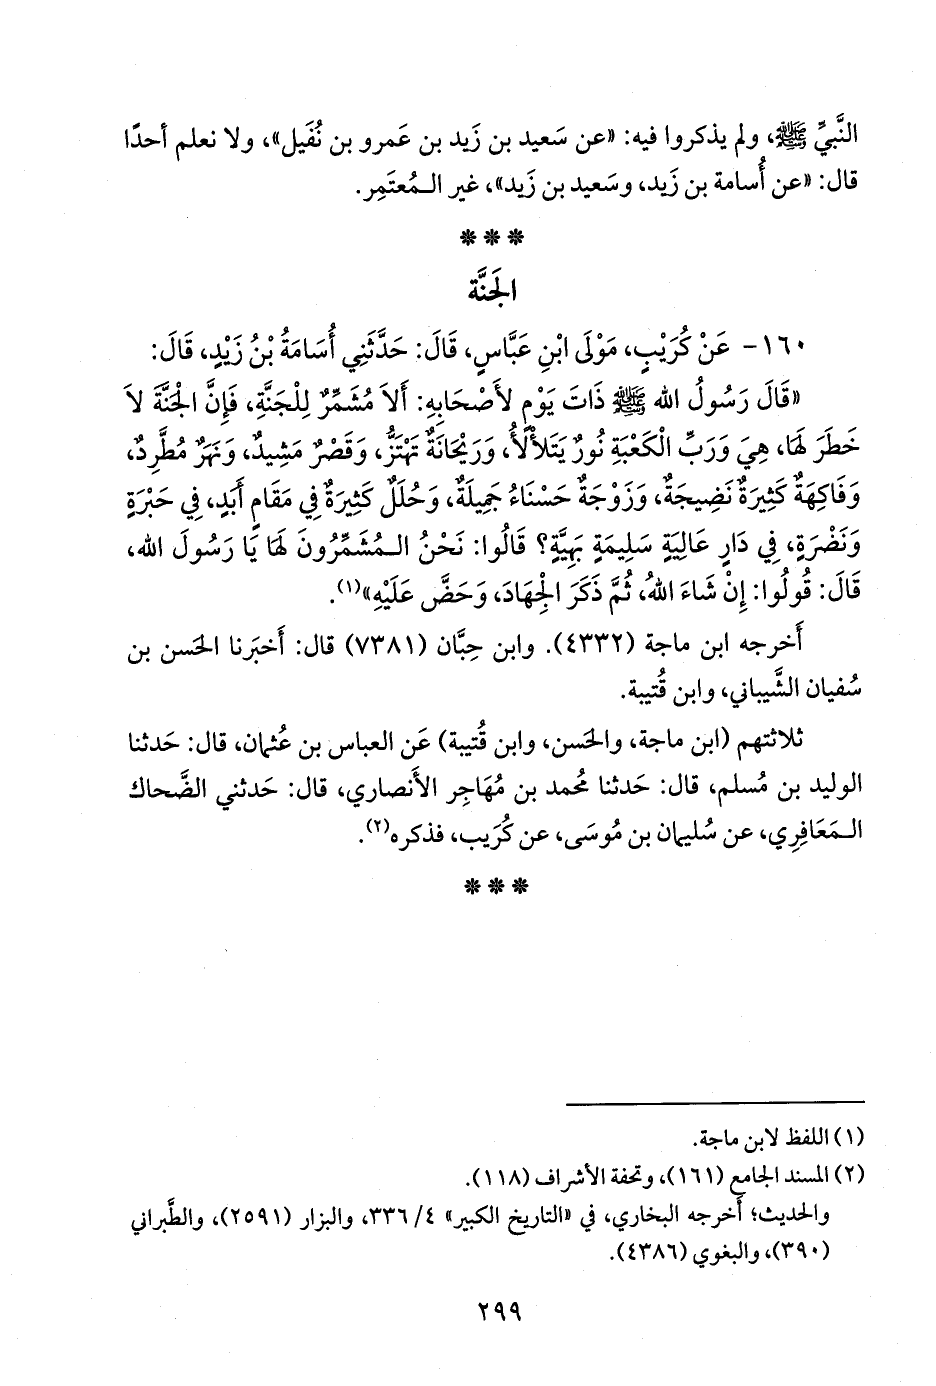 النَّبيِّ ﷺ، ولم يذكروا فيه: «عن سَعيد بن زَيد بن عَمرو بن نُفَيل»، ولا نعلم أحدًا
قال: «عن أُسامة بن زَيد، وسَعيد بن زَيد»، غير الـمُعتَمِر.
* * *
الجَنَّة
١٦٠- عَنْ كُرَيْبٍ، مَوْلَى ابْنِ عَبَّاسٍ، قَالَ: حَدَّثَنِي أُسَامَةُ بْنُ زَيْدٍ، قَالَ:
«قَالَ رَسُولُ الله ﷺ ذَاتَ يَوْمٍ لأَصْحَابِهِ: أَلاَ مُشَمِّرٌ لِلْجَنَّةِ، فَإِنَّ الْجَنَّةَ لاَ
خَطَرَ لَهَا، هِيَ وَرَبِّ الْكَعْبَةِ نُورٌ يَتَلأْلأُ، وَرَيْحَانَةٌ تَهْتَزُّ، وَقَصْرٌ مَشِيدٌ، وَنَهَرٌ مُطَّرِدٌ،
وَفَاكِهَةٌ كَثِيرَةٌ نَضِيجَةٌ، وَزَوْجَةٌ حَسْنَاءُ جَمِيلَةٌ، وَحُلَلٌ كَثِيرَةٌ فِي مَقَامٍ أَبَدٍ، فِي حَبْرَةٍ
وَنَضْرَةٍ، فِي دَارٍ عَالِيَةٍ سَلِيمَةٍ بَهِيَّةٍ؟ قَالُوا: نَحْنُ الـمُشَمِّرُونَ لَهَا يَا رَسُولَ الله،
قَالَ: قُولُوا: إِنْ شَاءَ اللهُ، ثُمَّ ذَكَرَ الْجِهَادَ، وَحَضَّ عَلَيْهِ»(١).
أَخرجه ابن ماجة (٤٣٣٢). وابن حِبَّان (٧٣٨١) قال: أَخبَرنا الحَسن بن
سُفيان الشَّيباني، وابن قُتيبة.
ثلاثتهم (ابن ماجة، والحَسن، وابن قُتيبة) عَن العباس بن عُثمان، قال: حَدثنا
الوليد بن مُسلم، قال: حَدثنا مُحمد بن مُهَاجِر الأَنصاري، قال: حَدثني الضَّحاك
الـمَعَافِري، عن سُليمان بن مُوسَى، عن كُرَيب، فذكره(٢).
* * *
(١) اللفظ لابن ماجة.
(٢) المسند الجامع (١٦١)، وتحفة الأشراف (١١٨).
والحديث؛ أَخرجه البخاري، في «التاريخ الكبير» ٤/ ٣٣٦، والبزار (٢٥٩١)، والطَّبراني
(٣٩٠)، والبغوي (٤٣٨٦).
٢٩٩